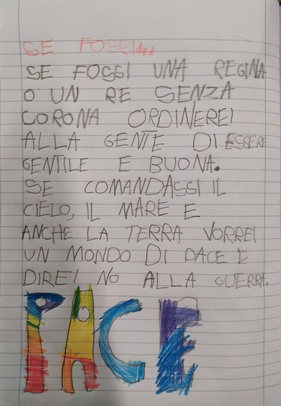 SE FOSSI...
SE FOSSI UNA REGINA
O UN RE SENZA
CORONA ORDINEREI
ALLA GENTE DI ESSERE
GENTILE E BUONA.
SE COMANDASSI IL
CIELO, IL MARE E
ANCHE LA TERRA VORREI
UN MONDO DI PACE E
DIREI NO ALLA GUERRA.
PACE